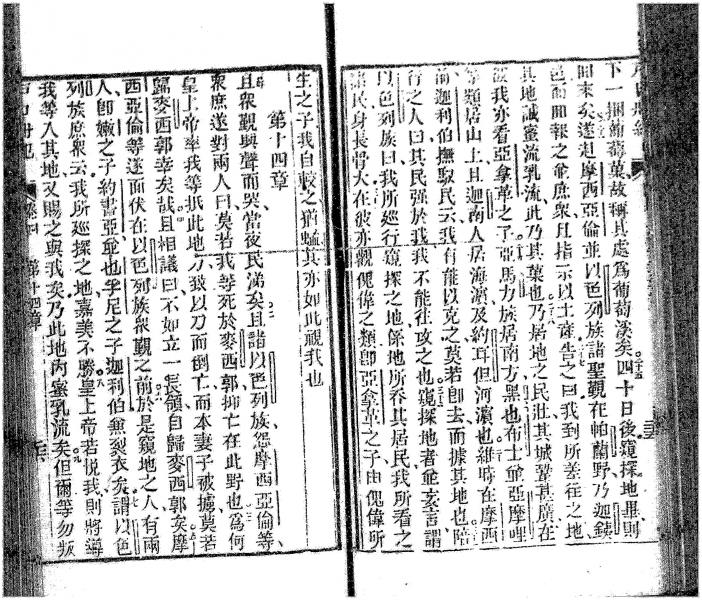 下一捆葡萄菓故稱其處爲葡萄溪矣四十日後窺探地畢則
回來矣遂赴摩西亞倫並以色列族諸聖觀在帕蘭野乃迦鉄
色而回報之並庶衆且指示以土產告之曰我到所差往之地
其地誠蜜流乳流此乃其菓也乃居地之民壯其城鞏其廣在
彼我亦看亞拿革之子亞馬力族居南方黑也布士並亞摩哩
等類居山上且迦南人居海濱及約耳但河濱也維時在摩西
前迦利伯撫馭民云我有能以克之莫若卽去而據其地也陪
行之人曰其民强於我我不能往攻之也窺探地者並妄言謂
以色列族曰我所巡行窺探之地係地所吞其居民我所看之
諸民身長骨大在彼亦觀傀偉之類卽亞拿革之子由傀偉所
生之子我自較之猶蜢其亦如此視我也
第十四章
且衆觀興聲而哭當夜民涕矣且諸以色列族怨摩西亞倫等
衆庶遂對兩人曰莫若我等死於麥西郭抑亡在此野也爲何
皇上帝率我等抵此地方致以刀而倒亡而本妻子被擄莫若
歸麥西郭幸矣哉且相議曰不如立一長領自歸麥西郭矣摩
西亞倫等遂面伏在以色列族衆觀之前於是窺地之人有兩
人卽嫩之子約書亞並也孚尼之子迦利伯無裂衣矣謂以色
列族庶衆云我所巡探之地嘉美不勝皇上帝若悅我則將導
我等入其地又賜之與我矣乃此地內蜜乳流矣但爾等勿叛
第十四章